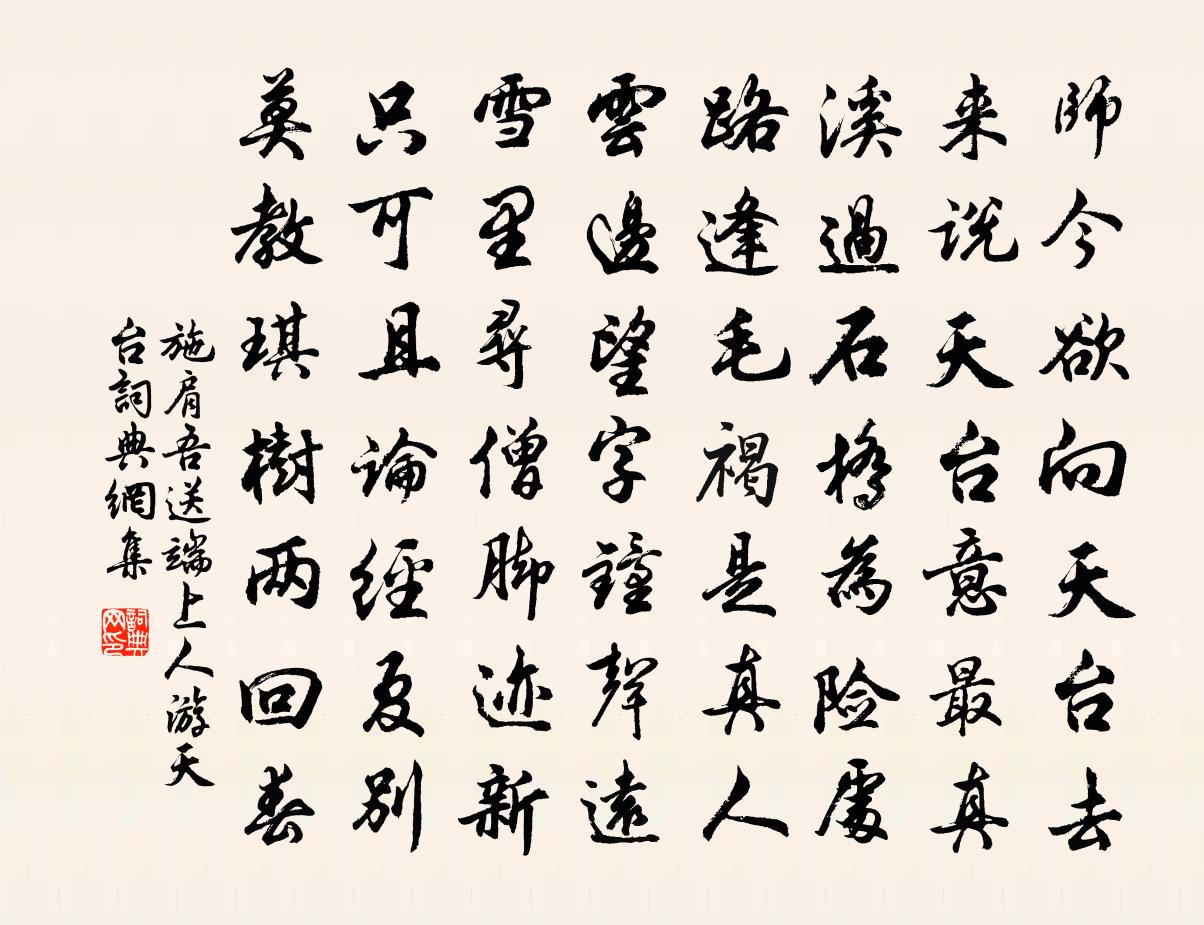 師今欲向天台去
来说天台意最真
溪過石橋為险處
路逢毛褐是真人
雲邊望字鐘聲遠
雪里尋僧脚迹新
只可且論經夏別
莫教琪樹两回春
施肩吾送端上人游天
台詞典網集
詞典
网印